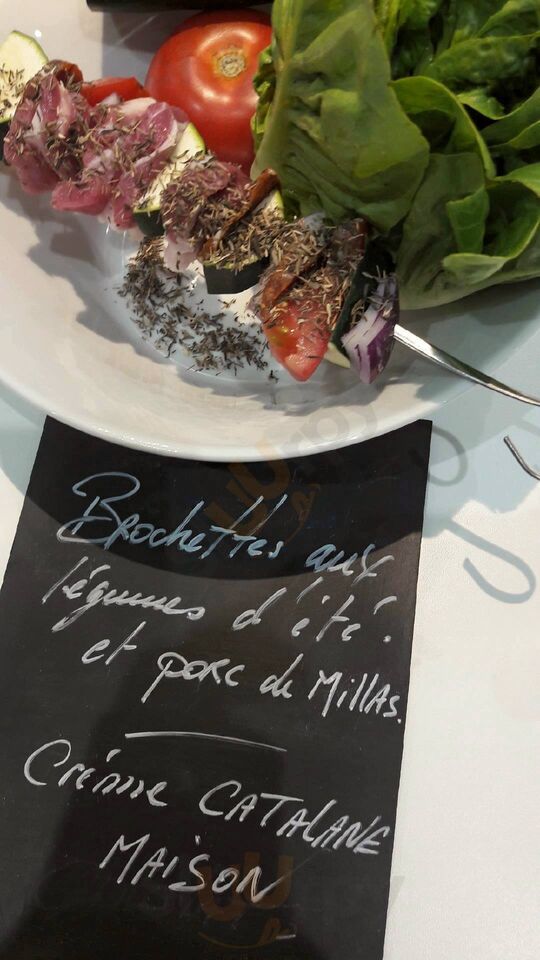 Brochettes aux
légumes d'été.
et porc de Millas.
Crème CATALANE
MAISON